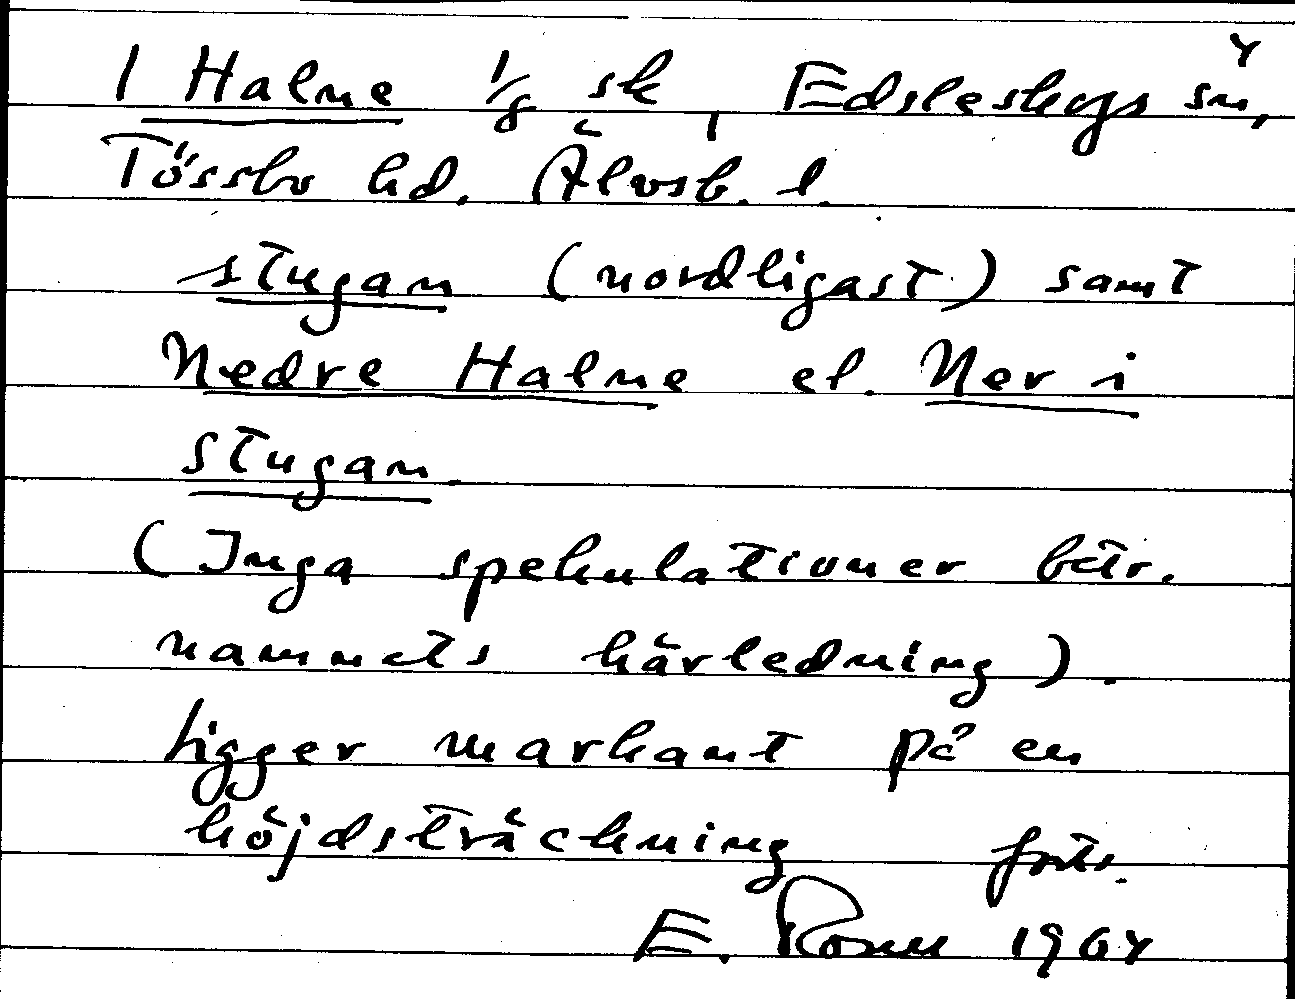 4
1 Halne 1/8 sk, Edsleskogs sn,
Tössbo hd. Älvsb. l.
stugan (nordligast) samt
Nedre Halne el. Ner i
stugan.
(Inga spekulationer betr.
namnets härledning).
ligger markant på en
höjdsträckning forts.
E. Rosell 1964